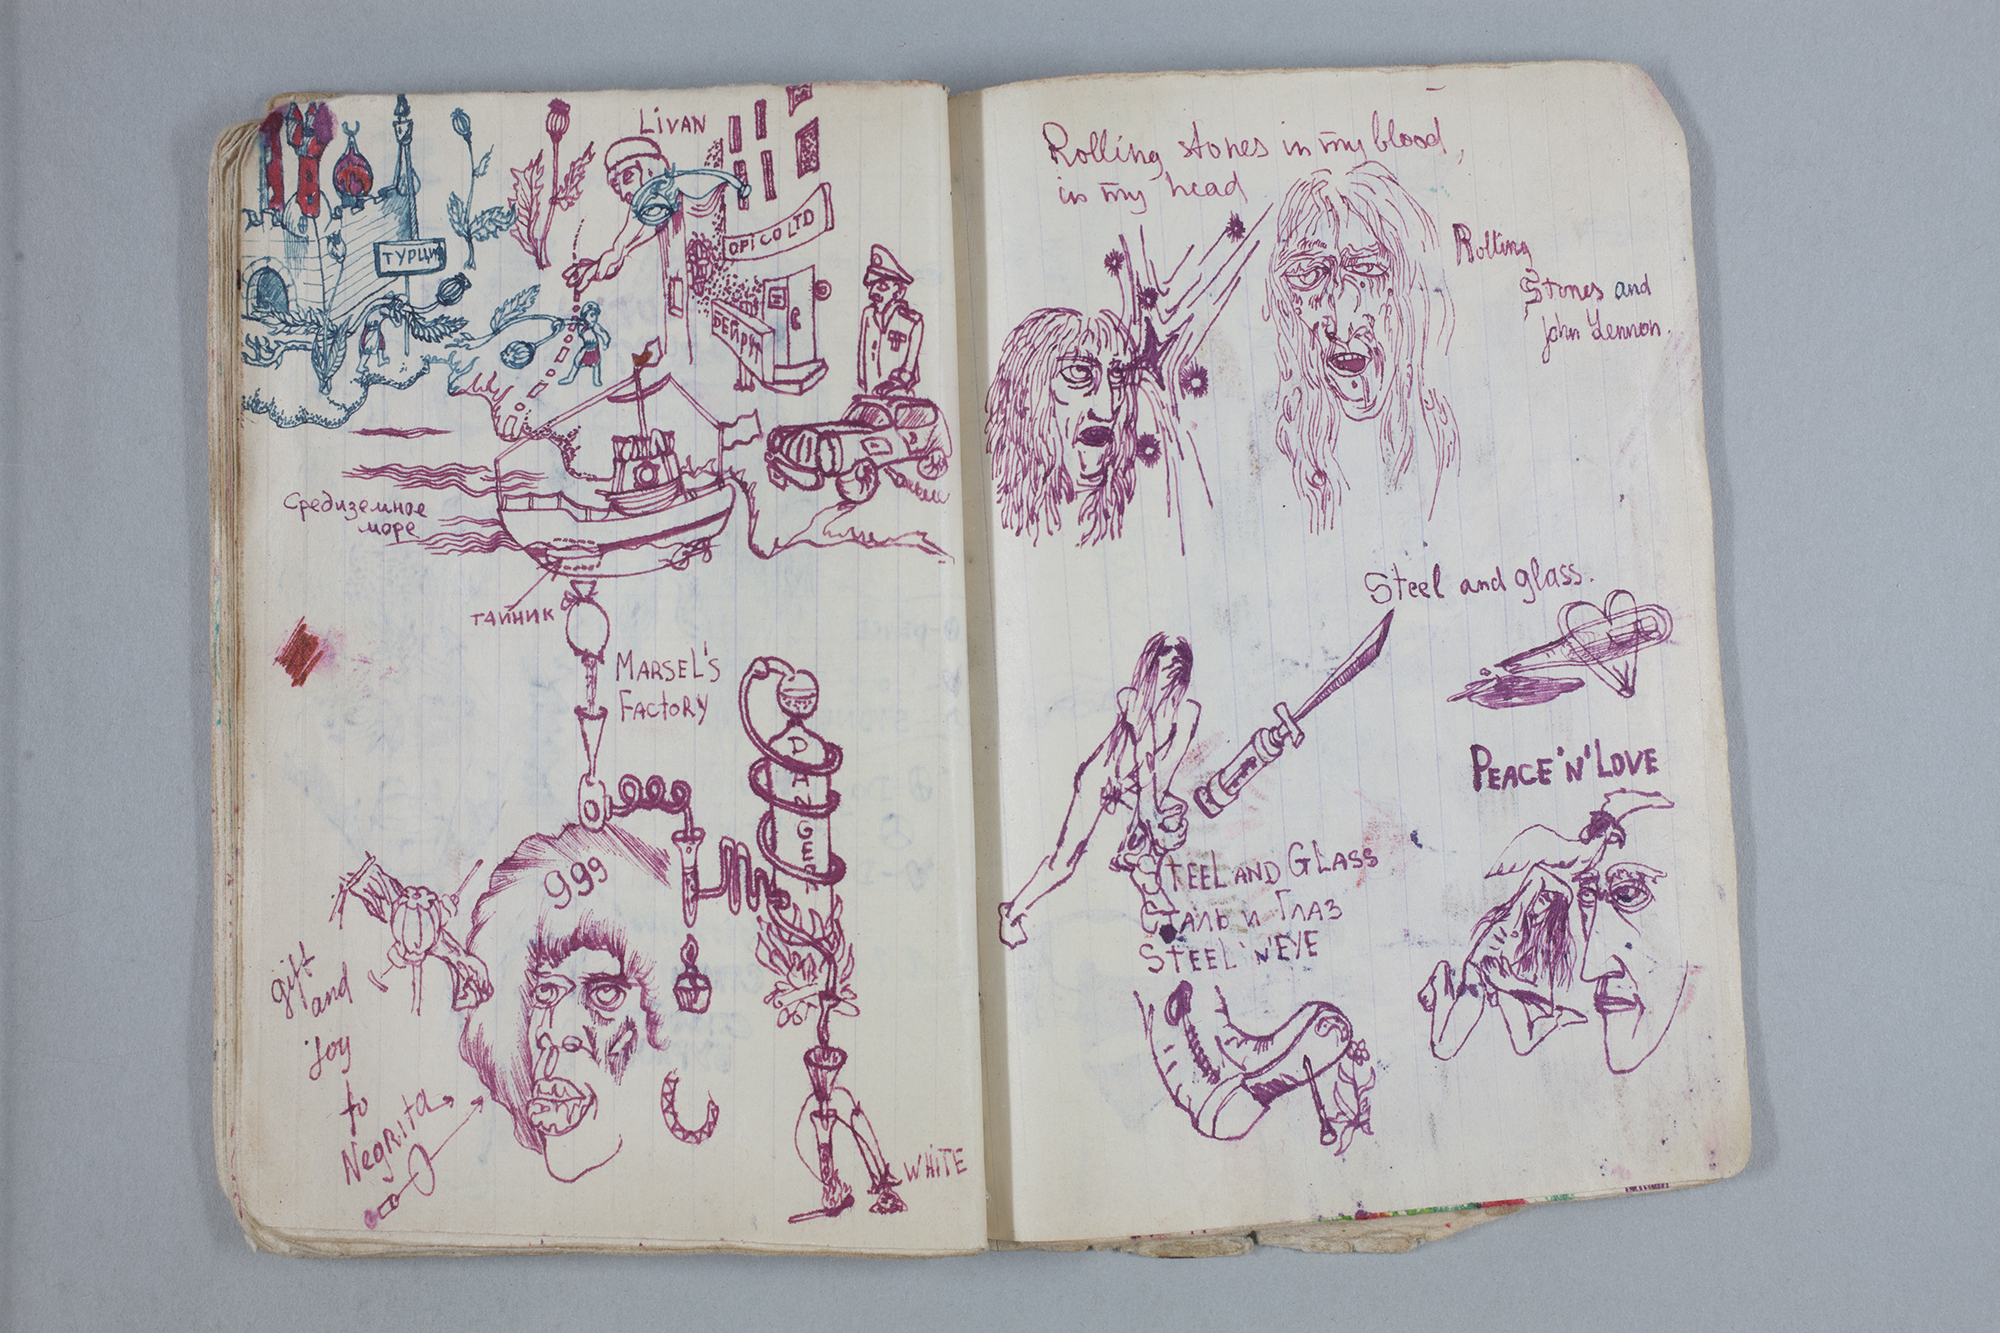 LIVAN
ТУРЦИЯ
OPI CO LTD
БЕЙРУТ
Средиземное
море
ТАЙНИК
MARSEL'S
FACTORY
DANGER
999
gift
and
joy
to
Negrita
WHITE
Rolling stones in my blood,
in my head
Rolling
Stones and
John Lennon.
Steel and glass.
PEACE 'N' LOVE
STEEL AND GLASS
СТАЛЬ И ГЛАЗ
STEEL 'N' EYE